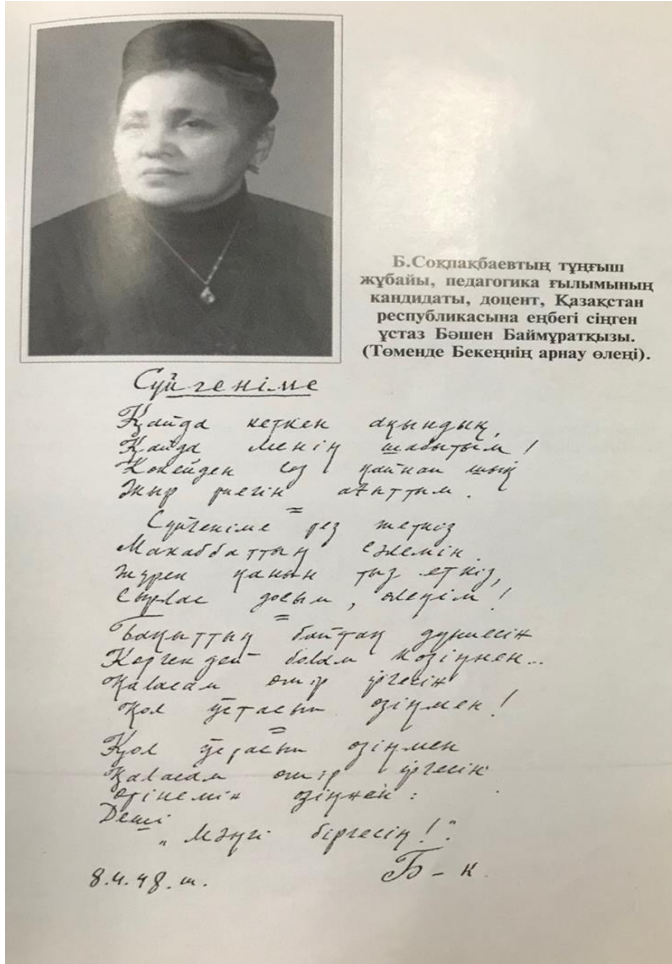 Б.Соқпақбаевтың тұңғыш
жұбайы, педагогика ғылымының
кандидаты, доцент, Қазақстан
республикасына еңбегі сіңген
ұстаз Бәшен Баймұратқызы.
(Төменде Бекеңнің арнау өлеңі).
Сүйгеніме
Қайда кеткен ақындық,
Қайда менің шабытым!
Көкейден сөз қайнап шық
Жыр ағытшы
Сүйгеніме тез жеткіз
Махаббаттың сәлемін.
Жүрек қанын тыз еткіз,
Сырлас досым, өлеңім!
Бақыттың байтақ дүниесін
Көргендей болам көзіңнен...
Қаласам өмір іргесін
Қол ұстасып өзіңмен!
Қол ұстасып өзіңмен
Қаласам өмір іргесін
Өтінемін өзіңнен:
Деші
„Мәңгі біргесің!".
8.4.48.ж.
Б-к.